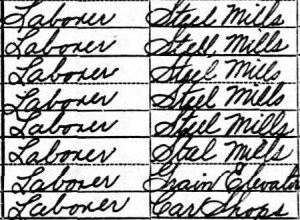 Laborer Steel Mills
Laborer Stell Mills
Laborer Steel Mills
Laborer Steel Mills
Laborer Steel Mills
Laborer Steel Mills
Laborer Grain Elevator
Laborer Car Shops